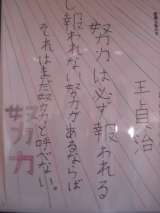 王貞治
努力は必ず報われる
報われない努力があるならば
それはまだ努力と呼べない。
努力